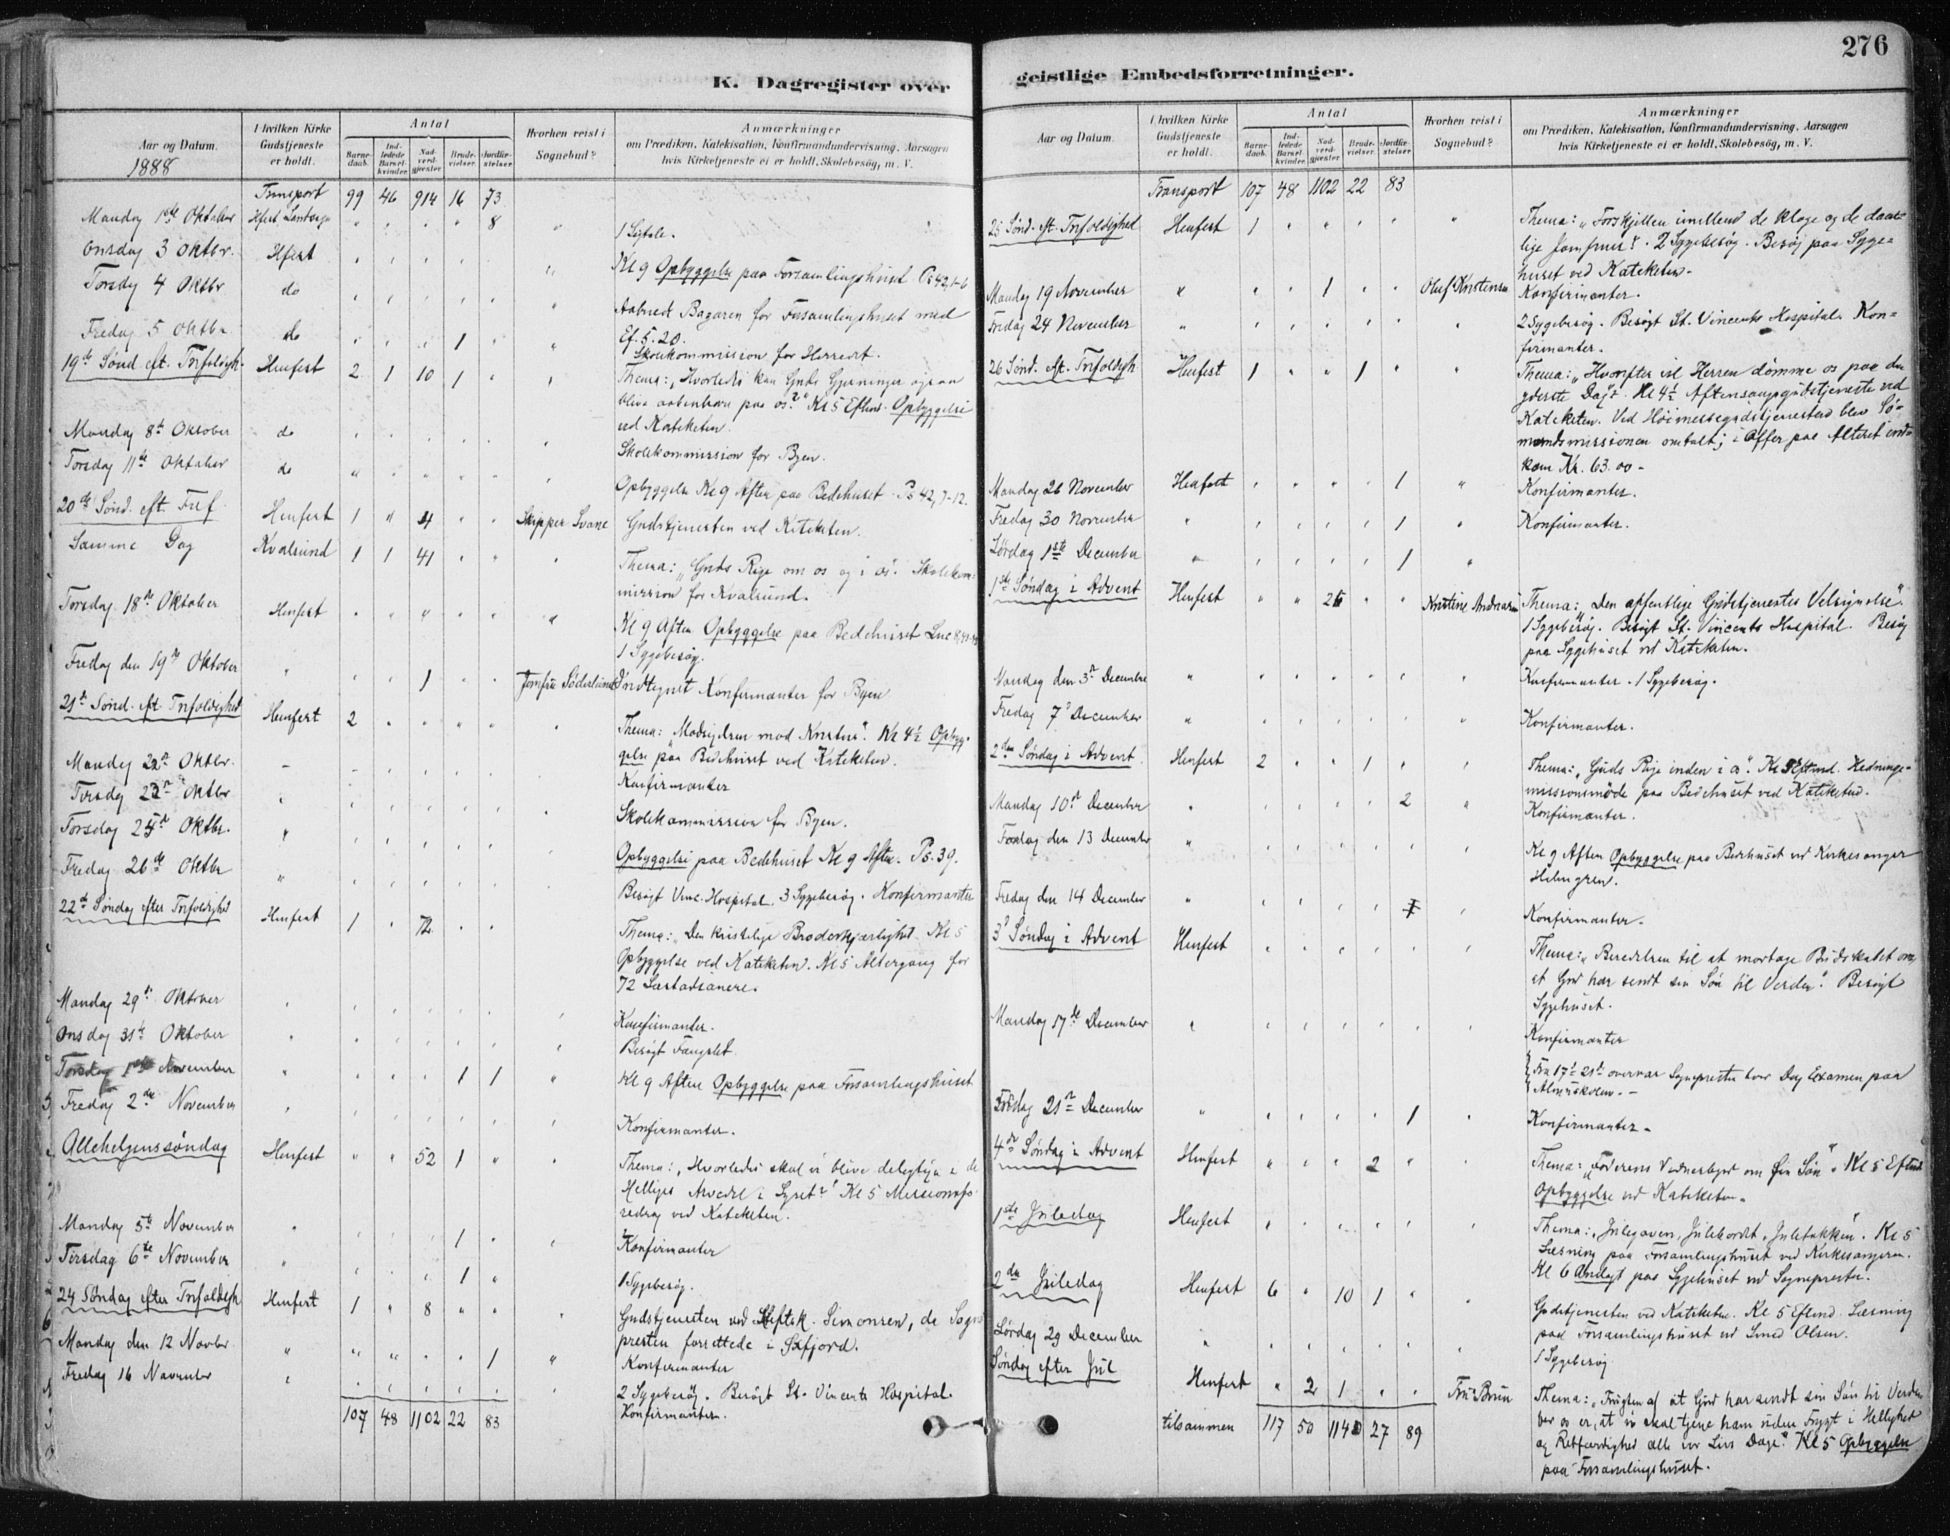 276
K. Dagregister over
geistlige Embedsforretninger.
Aar og Datum.
1888
I hvilken Kirke Gudstjeneste er holdt.
Antal
Barnedaab.
Indledede Barselkvinder
Nadverdgjæster
Brudevielser
Jordfæstelser
Hvorhen reist i Sognebud?
Anmærkninger
om Prædiken, Katekisation, Konfirmandundervisning. Aarsagen
hvis Kirketjeneste ei er holdt, Skolebesøg, m. V.
Transport 99 46 914 16 73
Mandag 1ste Oktober 8
Onsdag 3 Oktbr. Hfest Kl 9 Opbyggelse paa Forsamlingshuset Ps 42,1-6
Torsdg 4 Oktbr do Aabnede Bazaren for Forsamlingshuset med
Ef. 5. 20.
Fredag 5 Oktbr do 1 Skolekommission for Herredet.
19de Sønd eft. Trefoldigh. Hmfest 2 1 10 1 Thema: "Hvorledes kan Guds Gjerninger ogsaa
blive aabenbare paa os?" Kl 5 Eftmd. Opbyggelse
ved Kateketen.
Mandag 8de Oktober do Skolekommission for Byen.
Torsdag 11te Oktober do Opbyggelse Kl 9 Aften paa Bedehuset Ps 42,7-12.
20de Sønd. eft. Tref. Hmfest 1 " 4 Skipper Svane Gudstjenesten ved Kateketen.
Samme Dag Kvalsund 1 1 41 Thema: "Guds Rige om os og i os". Skolekom-
mission for Kvalsund.
Torsdag 18de Oktober Hmfest Kl 9 Aften Opbyggelse paa Bedehuset Luc
1 Sygebesøg.
Fredag den 19de Oktober 1 Jomfru Söderlund Indtegnet Konfirmanter for Byen
21de Sønd. eft. Trefoldighed Hmfest 2 Thema: "Modsigelsen mod Kristus". Kl 4½ Opbyg-
gelse paa Bedehuset ved Kateketen.
Mandag 22de Oktbr. Konfirmanter
Tirsdg 23de Oktbr Skolekommission for Byen.
Torsdag 25de Oktbr. Opbyggelse paa Bedehuset Kl 9 Aften. Ps. 39.
Fredag 26de Oktbr Besøgt Vinc. Hospital. 3 Sygebesøg. Konfirmanter
22de Søndag efter Trefoldighed Hmfest 1 72 Thema: "Den kristelige Broderkjærlighed. Kl 5
Opbyggelse ved Kateketen. Kl 5 Altergang for
72 Læstadianere.
Mandag 29de Oktober Konfirmanter.
Onsdag 31te Oktober Besøgt Fængslet.
Torsdag 1ste November 1 1 Kl 9 Aften Opbyggelse paa Forsamlingshuset
Fredag 2den November Konfirmanter.
Allehelgenssøndag Hmfest 52 1 Thema: "Hvorledes skal vi blive delagtige i de
Helliges Arvedel i Lyset?" Kl 5 Missionsfo-
redrag ved Kateketen.
Mandag 5te November 1 Konfirmanter
Tirsdag 6te November 1 1 Sygebesøg.
24 Søndag efter Trefoldigh Hmfest 1 " 8 Gudstjenesten ved Simonsen, da Sogne
presten forrettede i Øxfjord.
Mandag den 12 Novbr. 1 Konfirmanter
Fredag 16 November 2 Sygebesøg. Besøgt St. Vincents Hospital.
Konfirmanter.
107 48 1102 22 83
Aar og Datum.
I hvilken Kirke Gudstjeneste er holdt.
Antal
Barnedaab.
Indledede Barselkvinder
Nadverdgjæster
Brudevielser
Jordfæstelser
Hvorhen reist i Sognebud?
Anmærkninger
om Prædiken, Katekisation, Konfirmandundervisning. Aarsagen
hvis Kirketjeneste ei er holdt, Skolebesøg, m. V.
Transport 107 48 1102 22 83
25 Sønd. eft. Trefoldighed Hmfest 1 Thema: "Forskjellen imellem de kloge og de daar-
lige Jomfruer". 2 Sygebesøg. Besøg paa Syge-
huset ved Kateketen.
Mandag 19 November 1 Oluf Kristensen Konfirmanter.
Fredag 24 November 2 Sygebesøg. Besøgt St. Vincents Hospital. Kon-
firmanter.
26 Sønd. eft. Trefoldigh Hmfest 1 1 Thema: "Hvorefter vil Herren dømme os paa den
yderste Dag". Kl 4½ Aftensangsgudstjeneste ved
Kateketen. Ved Høimessegudstjenesten blev Sø-
mandsmissionen omtalt; i Offer paa Alteret ind-
kom Kr. 63.00 -
Mandag 26 November Hmfest 1 Konfirmanter.
Fredag 30 November 1 Konfirmanter.
Lørdag 1ste December 1
1ste Søndag i Advent Hmfest 26 Kristine Thema: "Den offentlige Gudstjenestes Velsignelse".
1 Sygebesøg. Besøgt St. Vincents Hospital. Besøg
paa Sygehuset ved Kateketen.
Mandag den 3de December Konfirmanter. 1 Sygebesøg.
Fredag 7de December Konfirmanter.
2den Søndag i Advent. Hmfest 2 1 Thema: "Guds Rige inden i os". Kl 5 Eftmd. Hedninge-
missionsmøde paa Bedehuset ved Kateketen.
Mandag 10de December 2 Konfirmanter.
Torsdag den 13 December Kl 9 Aften Opbyggelse paa Bedehuset ved Kirkesanger
Holmgren.
Fredag den 14 December Konfirmanter.
3die Søndag i Advent Hmfest Thema: "Beredelsen til at modtage Budskabet om,
at Gud har sendt sin Søn til Verden". Besøgt
Sygehuset.
Mandag 17de December Konfirmanter
Fra 17de-21de overvar Sognepresten hver Dag Examen paa
Almueskolen. -
Fredag 21de December 1 Konfirmanter.
4de Søndag i Advent Hmfest 2 Thema: "Faderens Vidnesbyrd om sin Søn". Kl 5 Eftmd
Opbyggelse ved Kateketen.
1ste Juledag Hmfest Thema: "Julegaven, Julebordet, Juletakken". Kl 5
Læsning paa Forsamlingshuset ved Kirkesangeren.
Kl 6 Andagt paa Sygehuset ved Sognepresten.
2den Juledag Hmfest 6 10 1 Gudstjenesten ved Kateketen. Kl. 5 Eftmd. Læsning
paa Forsamlingshuset ved Smed Olsen.
Lørdag 29 December 1 Sygebesøg
Søndag efter Jul Hmfest 2 1 Fru Bruun Thema: "Frugten af at Gud har sendt sin Søn til Verden
for os er, at vi skal tjene ham uden Frygt i Hellighed
og Retfærdighed alle vor Livs Dage". Kl 5 Opbyggelse
paa Forsamlingshuset.
tilsammen 117 50 1140 27 89